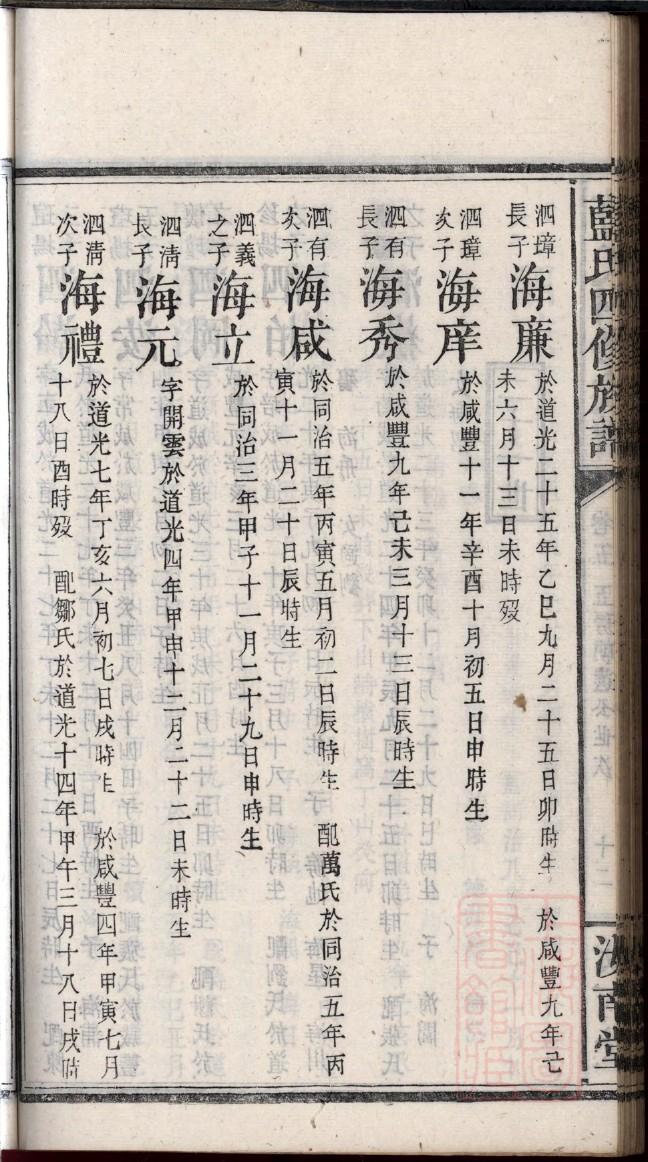 藍氏四修族譜
卷五
十二
汝南堂
泗璋長子 海廉 於道光二十五年乙巳九月二十五日卯時生 於咸豐九年己
未六月十三日未時歿
泗璋次子 海庠 於咸豐十一年辛酉十月初五日申時生
泗有長子 海秀 於咸豐九年己未三月十三日辰時生
泗有次子 海咸 於同治五年丙寅五月初二日辰時生 配萬氏於同治五年丙
寅十一月二十日辰時生
泗義之子 海立 於同治三年甲子十一月二十九日申時生
泗清長子 海元 字開雲於道光四年甲申十二月二十二日未時生
泗清次子 海禮 於道光七年丁亥六月初七日戌時生 於咸豐四年甲寅七月
十八日酉時歿 配鄒氏於道光十四年甲午三月十八日戌時